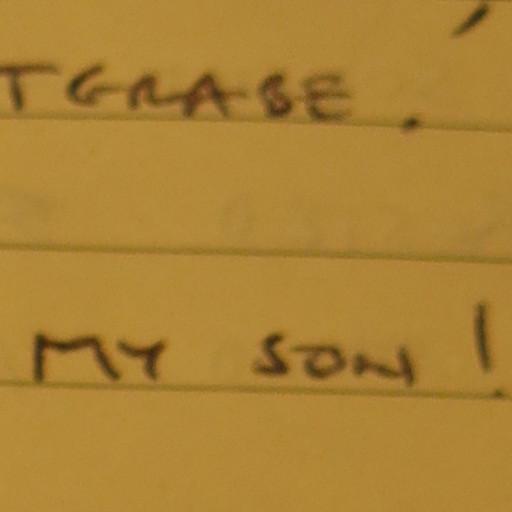 TGRABE.
MY SON!